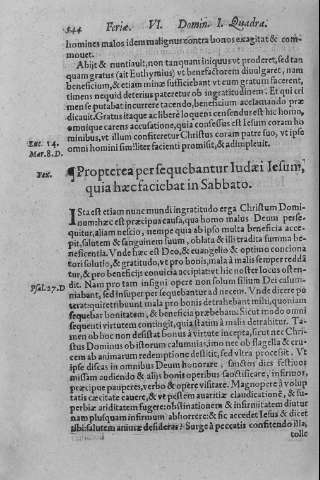 544 Feriæ. VI. Domin. I. Quadra.
homines malos idem malignus contra bonos exagitat & com-
mouet.
Abijt & nuntiauit, non tanquam iniquus vt proderet, sed tan
quam gratus (ait Euthymius) vt benefactorem diuulgaret, nam
beneficium, & etiam minæ sufficiebant vt eum gratum facerent,
timens nequid deterius pateretur ob ingratitudinem. Et qui cri
men se putabat incurrere tacendo, beneficium acclamando præ
dicauit. Gratus itaque ac liber à loquens censendus est hic homo,
omnique carens accusatione, quia confessus est Iesum coram ho
Luc. 14. minibus, vt illum confiteretur Christus coram patre suo, vt ipse
Mar. 8. D. omni homini similiter facienti promisit, & adimpleuit.
Tex. ¶Propterea persequebantur Iudæi Iesum,
quia hæc faciebat in Sabbato.
Ista est etiam nunc mundi ingratitudo erga Christum Domi
num: hæc est præcipua causa, qua homo malus Deum perse-
quitur, aliam nescio, nempe quia ab ipso multa beneficia acce
pit, salutem & sanguinem suum, oblata & illi tradita summa be-
neficentia. Vnde hæc est Deo, & euangelio & optimo conciona
tori solutio, & gratitudo, vt pro bonis, mala à malis semper reddã
tur, & pro beneficijs conuicia accipiat vt hic noster locus osten-
dit. Nam pro tam insigni opere non solum filium Dei calum-
Psal. 27. D niabant, sed insuper persequebantur ad necem. Vnde dicere po
terat: qui retribuunt mala pro bonis detrahebant mihi, quoniam
sequebar bonitatem, & beneficia præbebam. Sicut modo omni
sequenti virtutem contingit, quia statim à malis detrahitur. Ta-
men ob hoc non desistat bonus à virtute incepta, sicut nec Chri-
stus Dominus ob istorum calumnias, imo nec ob flagella & cru-
cem ab animarum redemptione destitit, sed vltra processit. Vt
ipse discas in omnibus Deum honorare, sanctos dies festiuos
missam audiendo & alijs bonis operibus sanctificare, infirmos,
præcipue pauperes, verbo & opere visitare. Magnopere à volup
tatis cæcitate cauere, & vt pestem auaritiæ claudicationé, & su-
perbiæ ariditatem fugere: obstinationem & infirmitatem diutur
nam plusquam infirmum abhorrere: & sic accedet Iesus & dicet
tibi: salutem animæ desideras? Surge à peccatis confitendo illa,
tolle